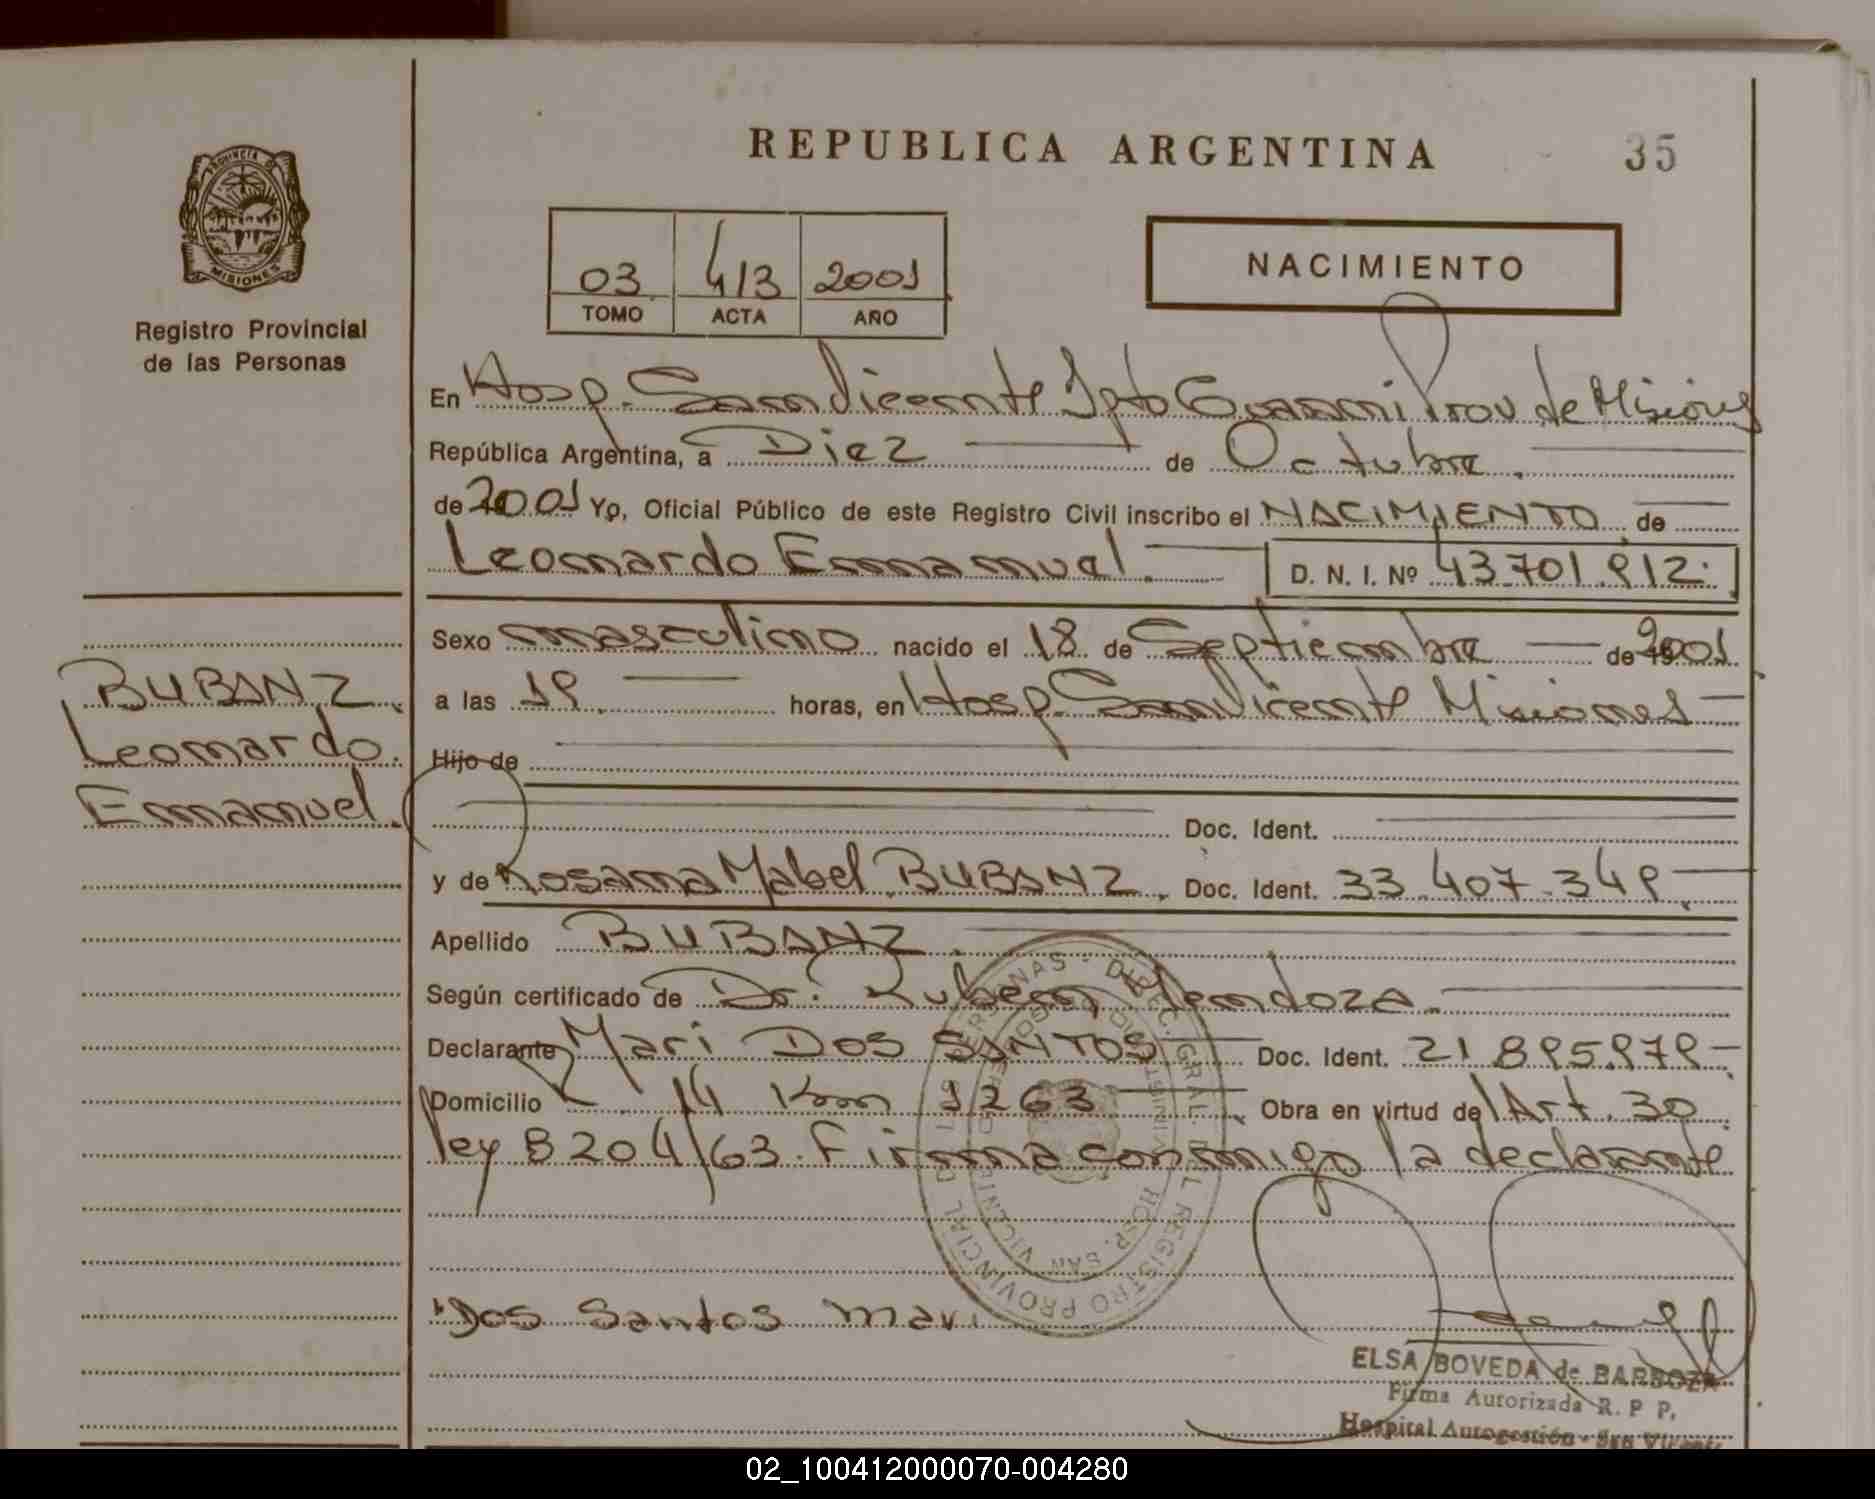 REPUBLICA ARGENTINA
35
PROVINCIA D MISIONES
Registro Provincial
de las Personas
03 413 2001
TOMO ACTA AÑO
NACIMIENTO
En Hosp. San Vicente Dpto Guarani Prov de Misiones
República Argentina, a Diez de Octubre.
de 2001 Yo, Oficial Público de este Registro Civil inscribo el NACIMIENTO de
Leonardo Emmanuel. D. N. I. Nº 43.701.912.
Sexo masculino nacido el 18 de Septiembre de 2001
a las 19. horas, en Hosp. San Vicente Misiones
Hijo de
Doc. Ident.
y de Rosana Mabel BUBANZ. Doc. Ident. 33.407.349.
Apellido BUBANZ.
Según certificado de Dr. Ruben Mendoza.
Declarante Mari DOS SANTOS Doc. Ident. 21.895.979
Domicilio 14 Km 1263 Obra en virtud de Art. 30
ley 8204/63. Firma conmigo la declarante
BUBANZ.
Leonardo.
Emmanuel.
REGISTRO PROVINCIAL DE LAS PERSONAS - DIREC. GRAL. DEL
HOSP. SAN VICENTE
Dos Santos Mari
ELSA BOVEDA de BARBOZA
Firma Autorizada R. P P.
Hospital Autogestión - San Vicente
02_100412000070-004280